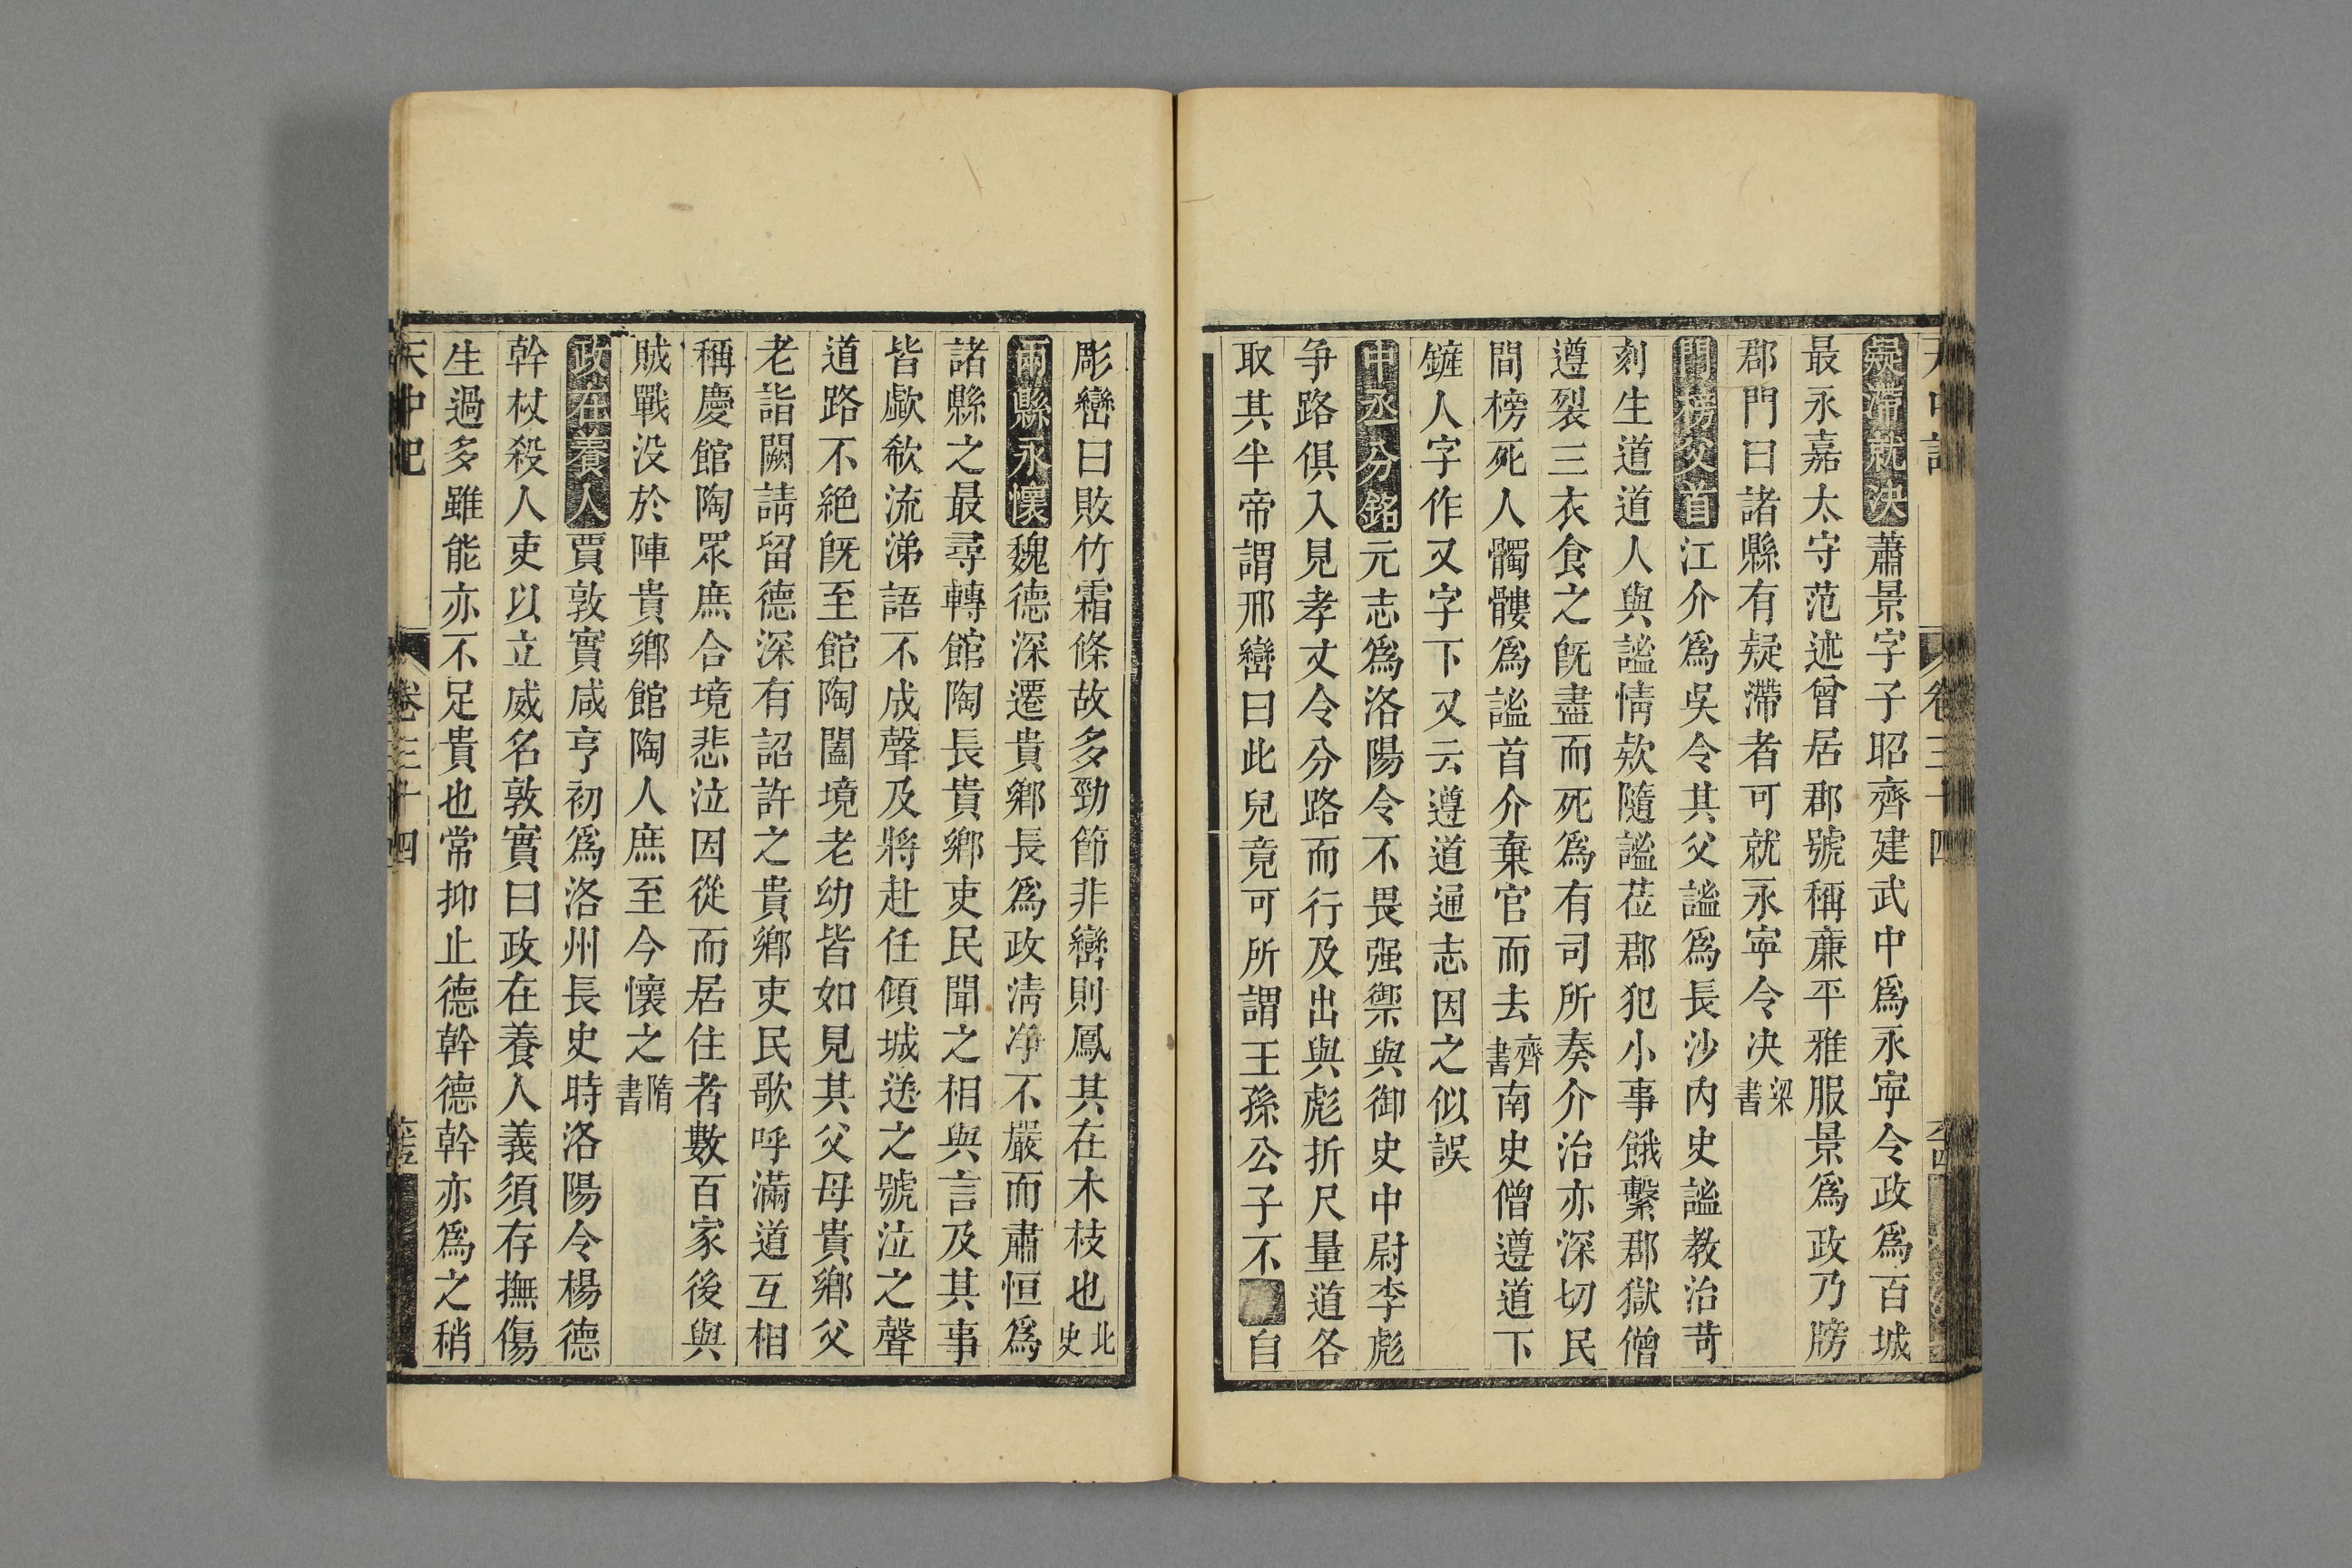 疑滯就決蕭景字子昭齊建武中爲永寧令政爲百城
最永嘉太守范述曾居郡號稱廉平雅服景爲政乃牓
郡門曰諸縣有疑滯者可就永寧令决梁書
間榜父首江介爲吳令其父謐爲長沙內史謐教治苛
刻生道道人與謐情欵隨謐莅郡犯小事餓繫郡獄僧
遵裂三衣食之旣盡而死爲有司所奏介治亦深切民
間榜死人髑髏爲謐首介棄官而去齊書南史僧遵道下
鏟人字作又字下又云遵道通志因之似誤
中丞分銘元志爲洛陽令不畏强禦與御史中尉李彪
争路俱入見孝丈令分路而行及出與彪折尺量道各
取其半帝謂邢巒曰此兒竟可所謂王孫公子不自
彫巒曰敗竹霜條故多勁節非巒則鳳其在木枝也北史
兩縣永懷魏德深遷貴鄉長爲政淸淨不嚴而肅恒爲
諸縣之最尋轉館陶長貴鄉吏民聞之相與言及其事
皆歔欷流涕語不成聲及將赴任傾城送之號泣之聲
道路不絕旣至館陶闔境老幼皆如見其父母貴鄉父
老詣闕請留德深有詔許之貴鄉吏民歌呼滿道互相
稱慶館陶眾庶合境悲泣因從而居住者數百家後與
賊戰没於陣貴鄉館陶人庶至今懷之隋書
政在養人賈敦實咸亨初爲洛州長史時洛陽令楊德
幹杖殺人吏以立威名敦實曰政在養人義須存撫傷
生過多雖能亦不足貴也常抑止德幹德幹亦爲之稍
天中記 卷三十四